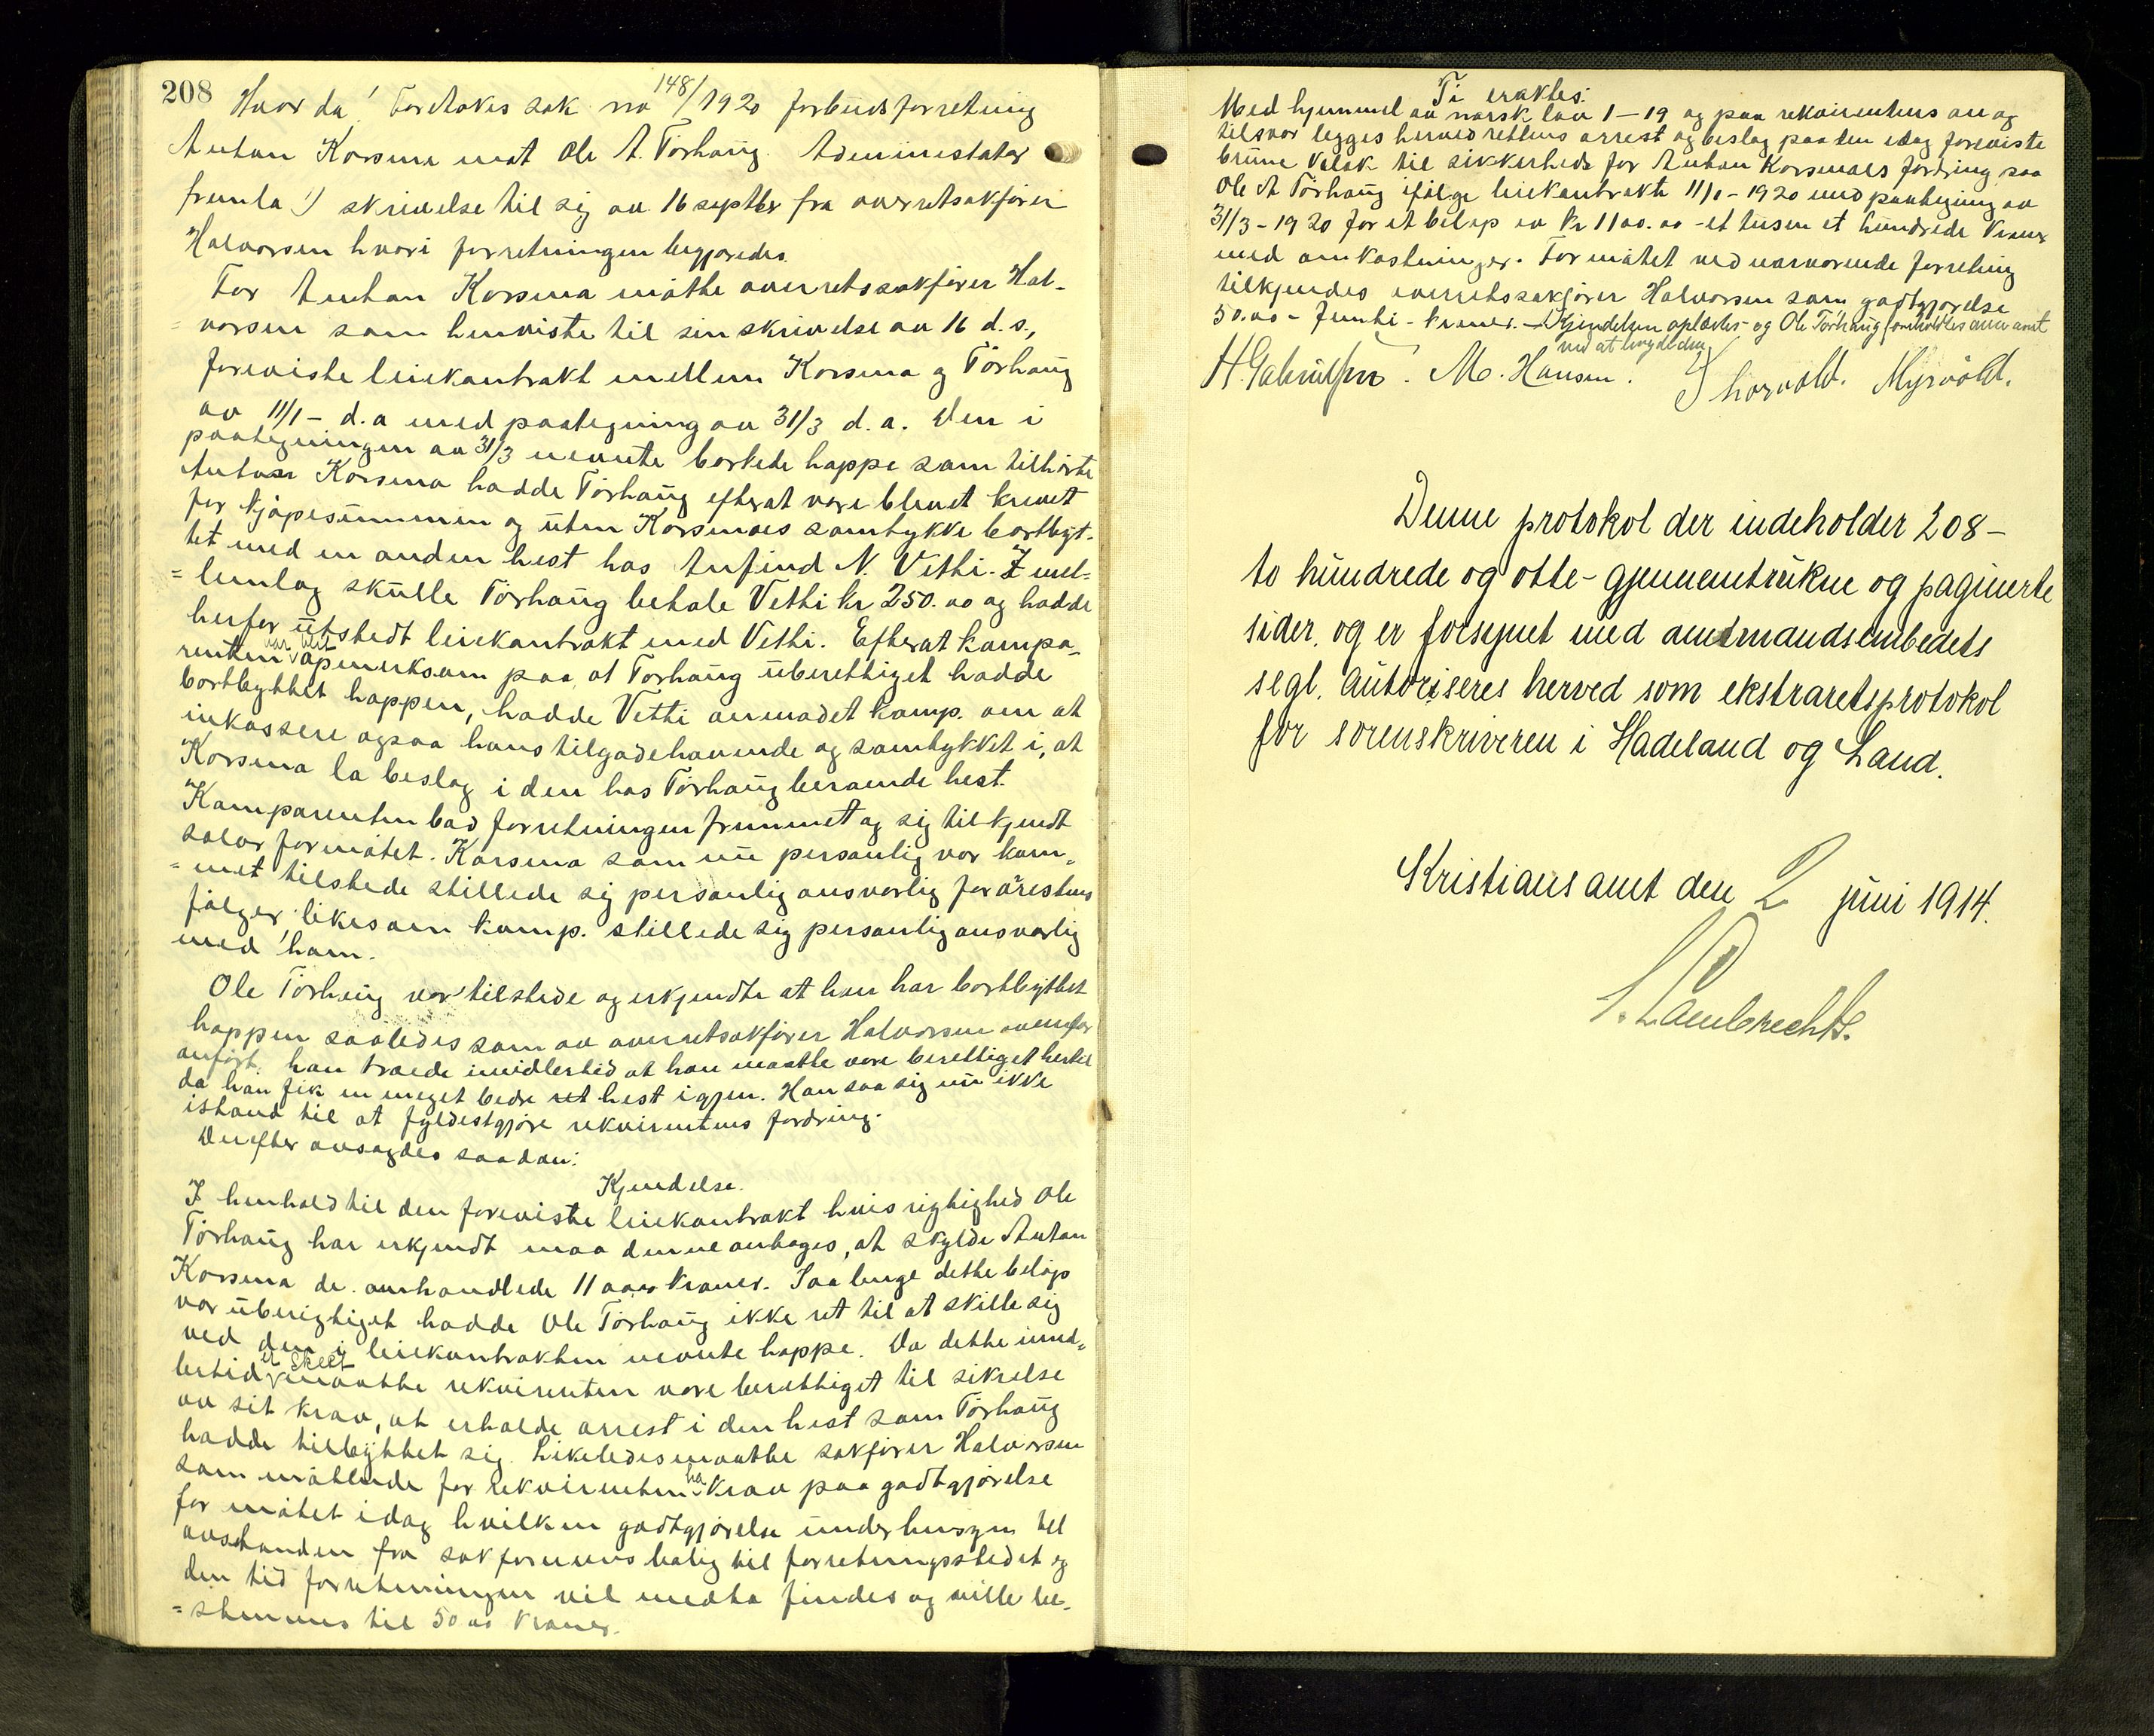 208
Hvor da! Foretokes sak no 148/1920 forbudsforretning
Anton Korsmo mot Ole A. Tørhaug. Administrator
fremla 1) skrivelse til sig av 16 septbr fra overretsakfører
Halvorsen hvori forretningen begjæredes.
For Anton Korsmo møtte overretssakfører Hal-
vorsen som henviste til sin skrivelse av 16 d.s.,
foreviste leiekontrakt mellem Korsmo og Tørhaug
av 11/1 - d.a med paategning av 31/3 d.a. Den i
paategningen av 31/3 nevnte borkede hoppe som tilhørte
Anton Korsmo hadde Tørhaug efterat være blevet krevet
for kjøpesummen og uten Korsmoes samtykke bortbyt-
tet med en anden hest hos Anfind N. Vethi. I mel=
=lemlag skulle Tørhaug betale Vethi kr 250.00 og hadde
herfor utstedt leiekontrakt med Vethi. Efterat kompa-
renten var blit opmerksom paa at Tørhaug uberettiget hadde
bortbyttet hoppen, hadde Vethi anmodet komp. om at
inkassere ogsaa hans tilgodehavende og samtykket i, at
Korsmo la beslag i den hos Tørhaug beroende hest.
Komparenten bad forretningen fremmet og sig tilkjendt
salær for møtet. Korsmo som nu personlig var kom=
=met tilstede stillede sig personlig ansvarlig for arrestens
følger, likesom komp. stillede sig personlig ansvarlig
med ham.
Ole Tørhaug var tilstede og erkjendte at han har bortbyttet
hoppen saaledes som av overretsakfører Halvorsen ovenfor
anført. han troede imidlertid at han maatte være berettiget hertil
da han fik en meget bedre hest igjen. Han saa sig nu ikke
istand til at fyldestgjøre rekvirentens fordring.
Derefter avsagdes saadan:
Kjendelse.
I henhold til den foreviste leiekontrakt hvis rigtighed Ole
Tørhaug har erkjendt maa denne antages, at skylde Anton
Korsmo de omhandlede 1100.00 kroner. Saa lenge dette beløp
var uberigtiget hadde Ole Tørhaug ikke ret til at skille sig
ved den i leiekontrakten nevnte hoppe. Da dette imid=
lertid er skeet maatte rekvirenten være berettiget til sikrelse
av sit krav, at erholde arrest i den hest som Tørhaug
hadde tilbyttet sig. Likeledes maatte sakfører Halvorsen
som møttende for rekvirenten ha krav paa godtgjørelse
for møtet idag hvilken godtgjørelse under hensyn til
avstanden fra sakførerens bolig til forretningsstedet og
den tid forretningen vil medta findes og ville be-
=stemmes til 50.00 kroner.
Ti eragtes:
Med hjemmel av norsk lov 1-19 og paa rekvirentens an og
tilsvar legges herved rettens arrest og beslag paa den idag foreviste
brune valak til sikkerhed for Anton Korsmoes fordring paa
Ole A Tørhaug ifølge leiekontrakt 11/1-1920 med paategning av
31/3-1920 for et beløp av kr 1100.00 - et tusen et hundrede kroner
med omkostninger. For møtet ved nærværende forretning
tilkjendes overretssakfører Halvorsen som godtgjørelse
50.00 - femti - kroner. - Kjendelsen oplæstes og Ole Tørhaug
ved at
H. Gabrielsen. M. Hansen. Thorvald. Myrvold.
Denne protokol der indeholder 208 -
to hundrede og otte - gjennemtrukne og paginerte
sider og er forsynet med amtmandsembedets
segl. Autoriseres herved som ekstraretsprotokol
for sorenskriveren i Hadeland og Land.
Kristians amt den 2 juni 1914.
S. Lambrechts.